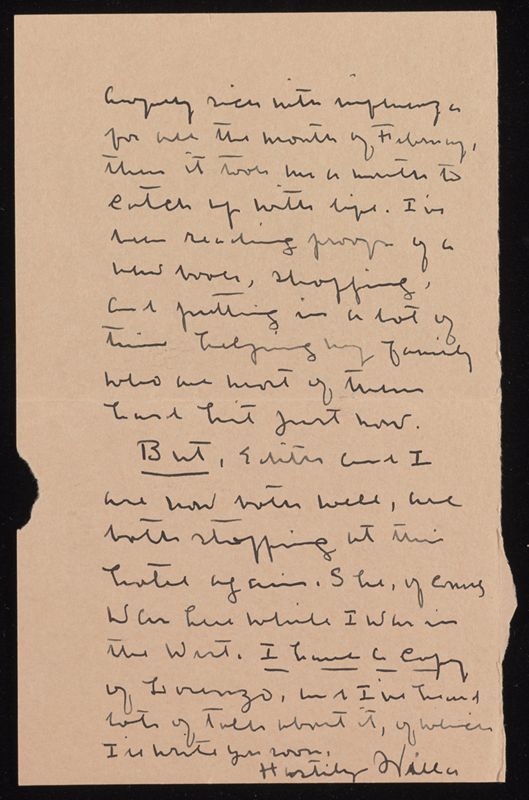 awfully sick with influenza
for all the month of February,
then it took me a month to
catch up with life. I've
been reading proofs of a
new book, shopping,
and putting in a lot of
time helping my family
who are most of them
hard hit just now.
But, Edith and I
are now both well, are
both stopping at this
hotel again. She, of course
was here while I was in
the West. I have a copy
of Lorenzo, and I've heard
lots of talk about it, of which
I'll write you soon.
Hastily Willa